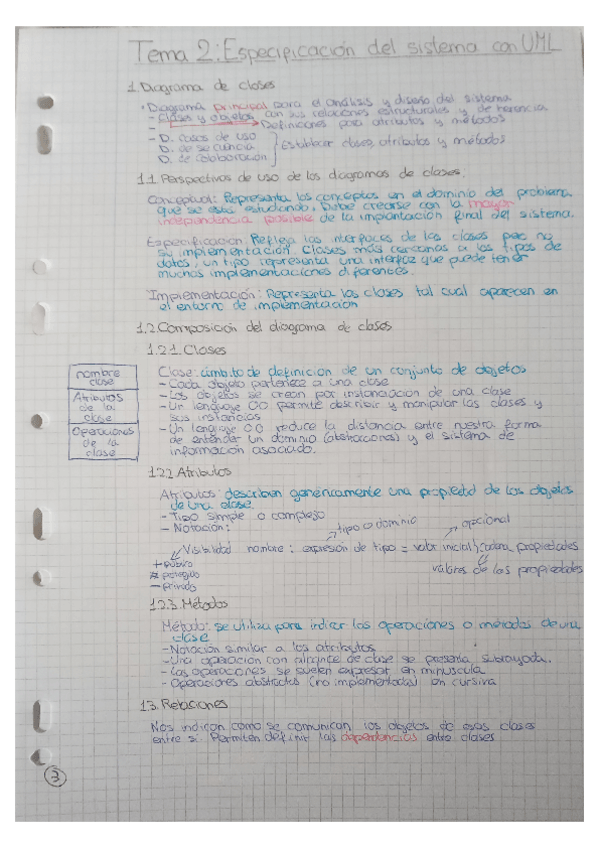 Tema 2: Especificación del sistema con UML
1. Diagrama de clases
• Diagrama principal para el análisis y diseño del sistema
- Clases y objetos con sus relaciones estructurales y de herencia
→ Definiciones para atributos y métodos
- D. casos de uso
D. de secuencia
D. de colaboración
Establecer clases, atributos y métodos
1.1. Perspectivas de uso de los diagramas de clases:
Conceptual: Representa los conceptos en el dominio del problema
que se está estudiando. Debe crearse con la mayor
independencia posible de la implantación final del sistema.
Especificación: Refleja las interfaces de las clases pero no
su implementación. Clases más cercanas a los tipos de
datos, un tipo representa una interfaz que puede tener
muchas implementaciones diferentes.
Implementación: Representa las clases tal cual aparecen en
el entorno de implementación
1.2. Composición del diagrama de clases
1.2.1. Clases
nombre
clase
Atributos
de la
clase
Operaciones
de la
clase
Clase: ámbito de definición de un conjunto de objetos
- Cada objeto pertenece a una clase
- Los objetos se crean por instanciación de una clase
- Un lenguaje OO permite describir y manipular las clases y
sus instancias
- Un lenguaje OO reduce la distancia entre nuestra forma
de entender un dominio (abstracciones) y el sistema de
información asociado.
1.2.2 Atributos
Atributos: describen genéricamente una propiedad de los objetos
de una clase.
- Tipo simple o complejo
- Notación:
tipo o dominio
opcional
Visibilidad nombre : expresión de tipo = valor inicial {cadena propiedades
+ público
# protegido
- privado
valores de las propiedades
1.2.3. Métodos
Método: se utiliza para indicar las operaciones o métodos de una
clase
- Notación similar a los atributos
- Una operación con alcance de clase se presenta subrayada.
- Las operaciones se suelen expresar en minúscula
- Operaciones abstractas (no implementada) en cursiva
1.3. Relaciones
Nos indican como se comunican los objetos de esas clases
entre sí. Permiten definir las dependencias entre clases
3